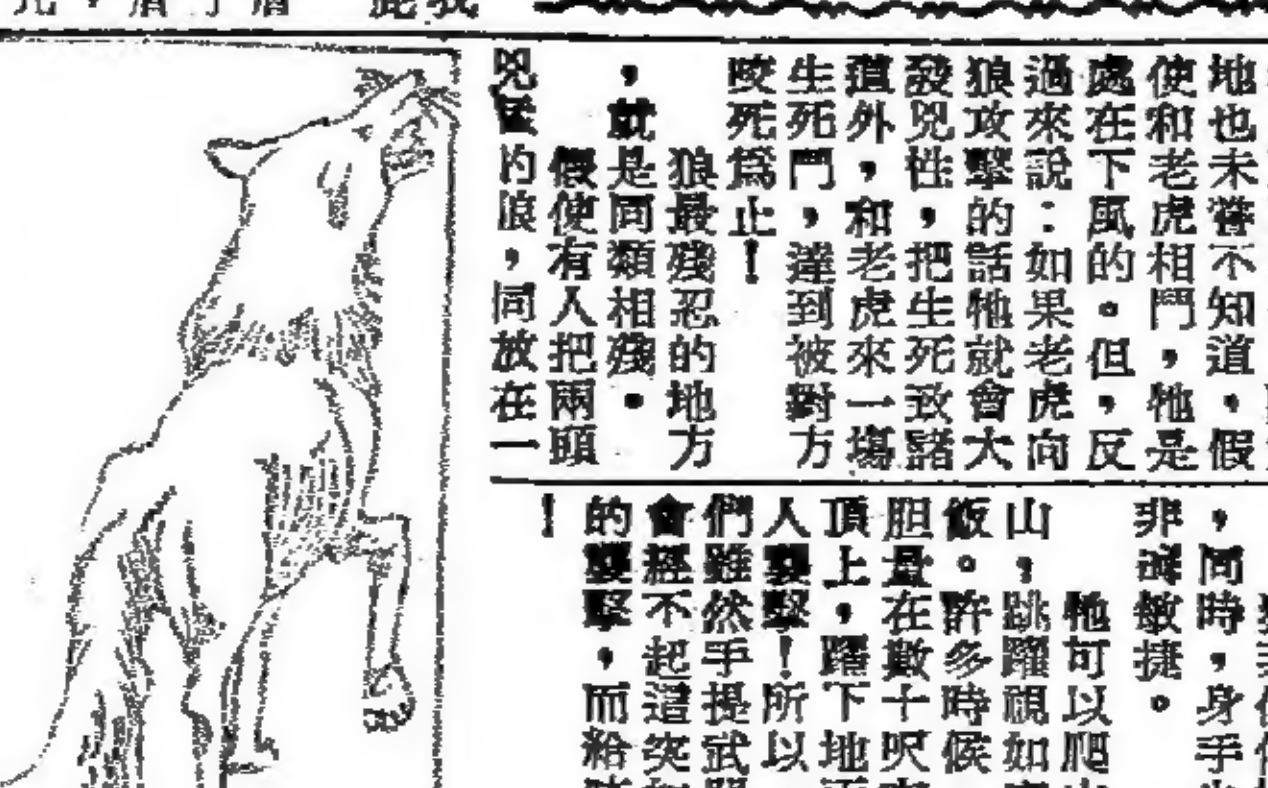 地也未嘗不知道，假
使和老虎相鬥，牠是
處在下風的。但，反
過來說：如果老虎向
狼攻擊的話牠就會大
發兇性，把生死致諸
道外，和老虎來一場
生死鬥，達到被對方
咬死為止！
狼最殘忍的地方
，就是同類相殘。
假使有人把兩頭
兇猛的狼，同放在一
，同時，身手
非常敏捷。
牠可以爬
山，跳躍視如
飯。許多時候
胆量在數十呎
頂上，躍下地
人襲擊！所以
們雖然手提武
會經不起這突
的襲擊，而給
！